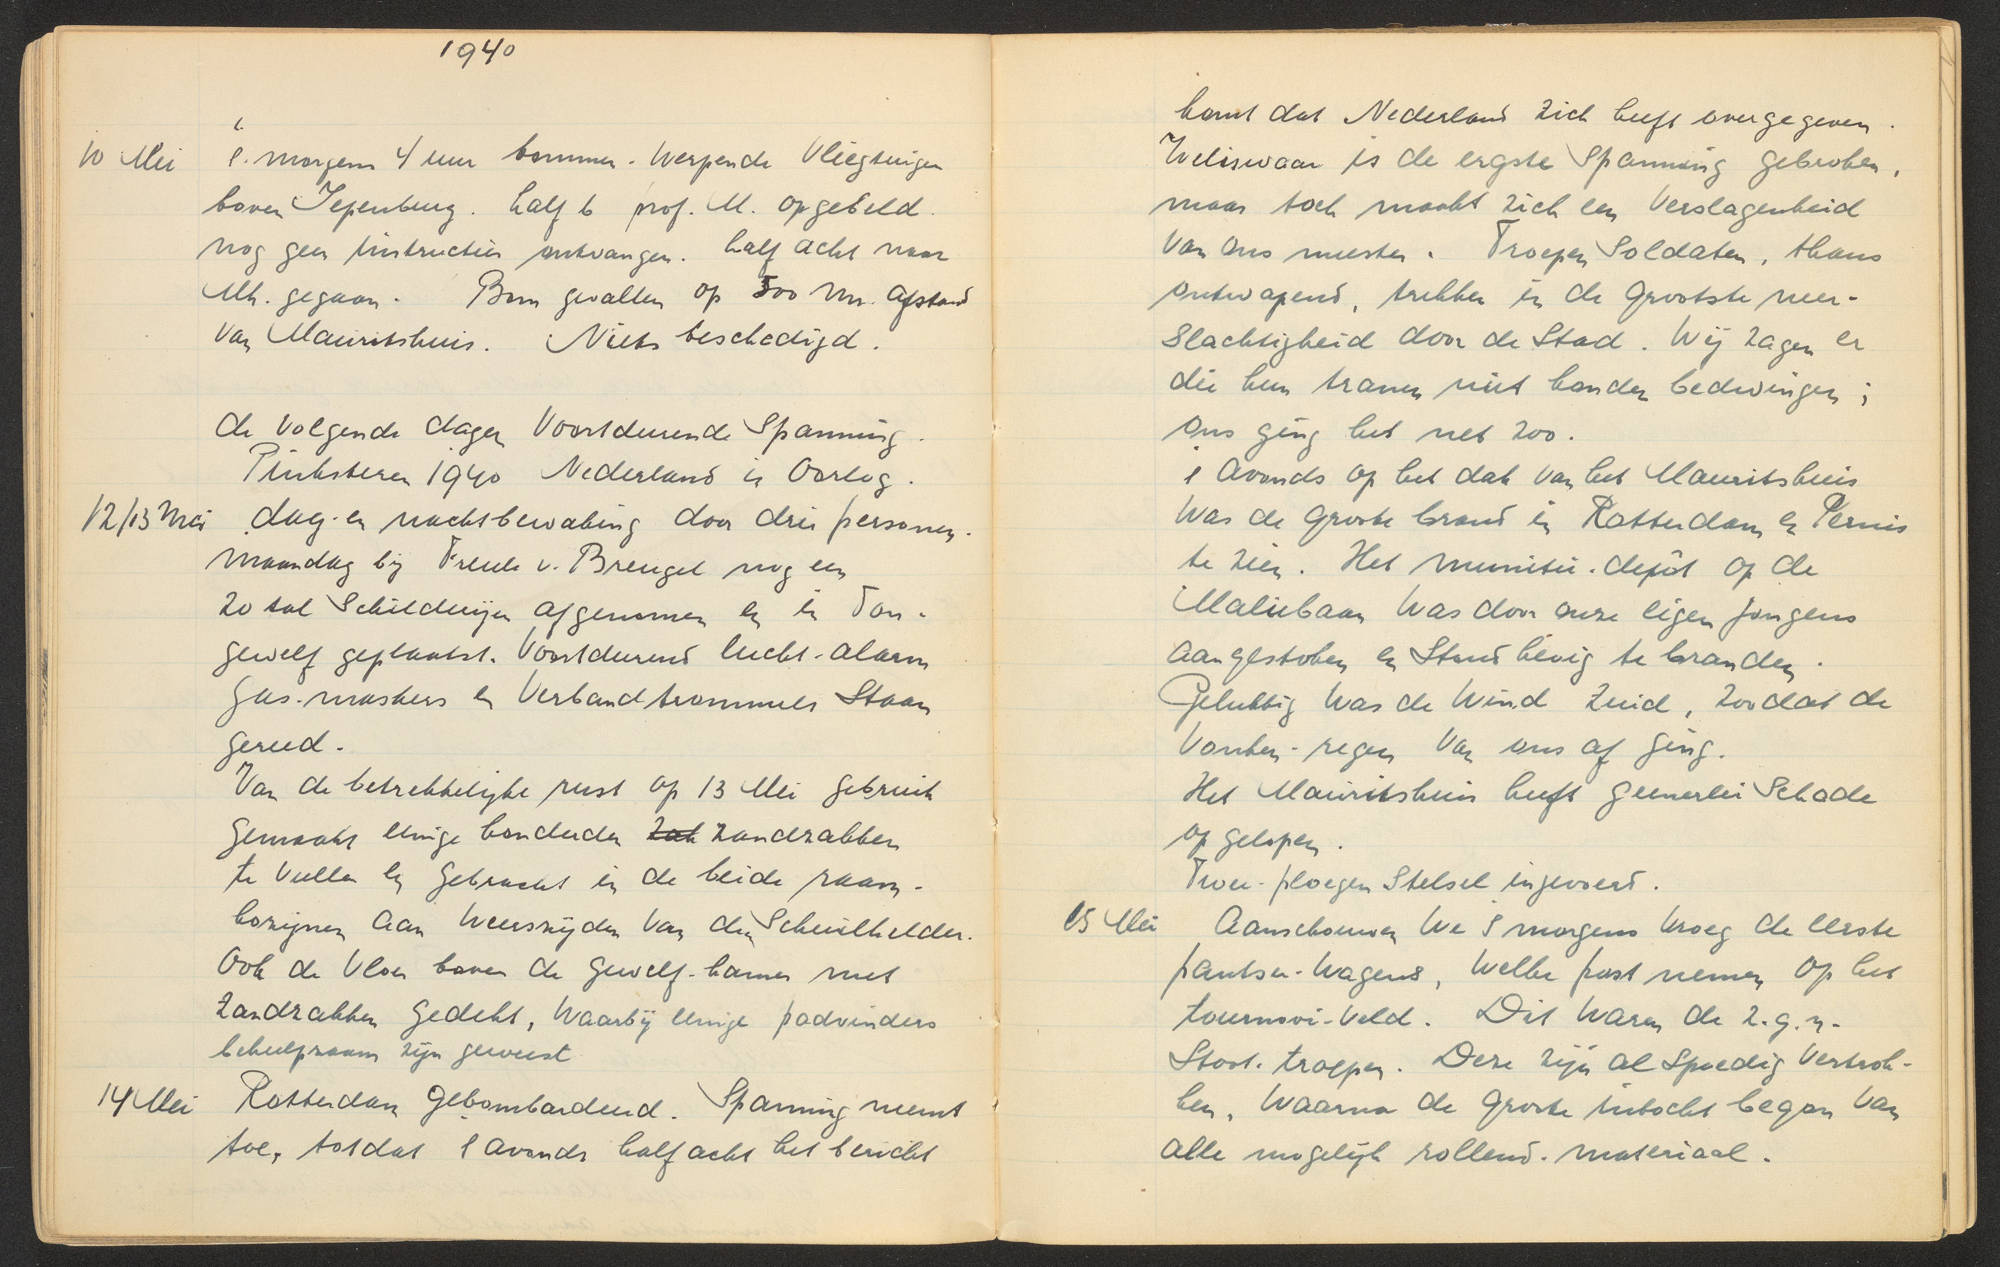 1940
10 Mei 's morgens 4 uur bommen-werpende vliegtuigen
boven Iepenburg. half 6 prof. M. opgebeld.
nog geen instructies ontvangen. half acht naar
Mh. gegaan. Bom gevallen op 500 M. afstand
van Mauritshuis. Niets beschadigd.
de volgende dagen voortdurende Spanning.
Pinksteren 1940 Nederland in Oorlog.
12/13 Mei dag- en nachtbewaking door drie personen.
maandag bij Freule v. Breugel nog een
20 tal Schilderijen afgenomen en in Ton-
gewelf geplaatst. Voortdurend lucht-alarm
gas-maskers en Verbandtrommels Staan
gereed.
Van de betrekkelijke rust op 13 Mei gebruik
gemaakt eenige honderden zak zandzakken
te vullen en gebracht in de beide raam-
kozijnen aan weerszijden van den Schuilkelder.
Ook de Vloer boven de gewelf-kamer met
zandzakken gedekt, waarbij eenige padvinders
behulpzaam zijn geweest
14 Mei Rotterdam gebombardeerd. Spanning neemt
toe, totdat 's avonds half acht het bericht
komt dat Nederland zich heeft overgegeven.
Weliswaar is de ergste Spanning gebroken,
maar toch maakt zich een Verslagenheid
van ons meester. Troepen Soldaten, thans
ontwapend, trekken in de grootste neer-
slachtigheid door de Stad. Wij zagen er
die hun tranen niet konden bedwingen;
ons ging het net zoo.
's Avonds op het dak van het Mauritshuis
was de groote brand in Rotterdam en Pernis
te zien. Het munitie-depôt op de
Maliebaan was door onze eigen jongens
aangestoken en Stond hevig te branden.
Gelukkig was de Wind Zuid, zoodat de
Vonken-regen van ons af ging.
Het Mauritshuis heeft geenerlei Schade
opgelopen.
Twee-ploegen Stelsel ingevoerd.
15 Mei Aanschouwen we 's morgens vroeg de eerste
pantser-wagens, welke post nemen op het
tournooi-Veld. Dit waren de z.g.n.
Stoot-troepen. Deze zijn al Spoedig Vertrok-
ken, waarna de groote intocht began van
alle mogelijk rollend-materiaal.